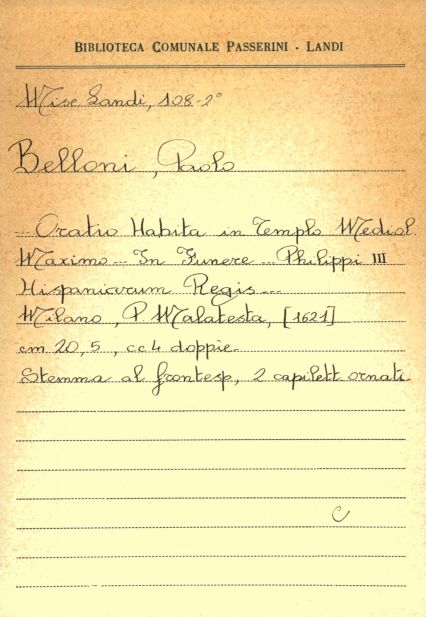 BIBLIOTECA COMUNALE PASSERINI - LANDI
Misc Landi, 108-2°
Belloni, Paolo
... Oratio Habita in Templo Mediol
Maximo... In Funere... Philippi III
Hispaniarum Regis...
Milano, P. Malatesta, [1621]
cm 20,5, cc 4 doppie.
Stemma al frontesp, 2 capilett ornati
C